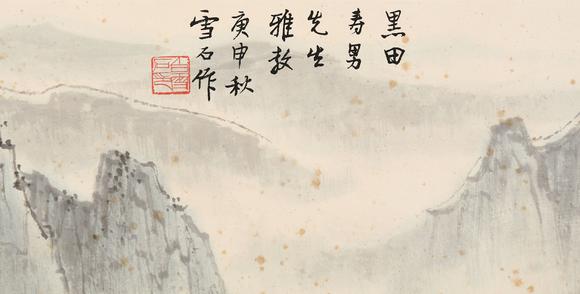 黒田
寿男
先生
雅教
庚申秋
雪石作